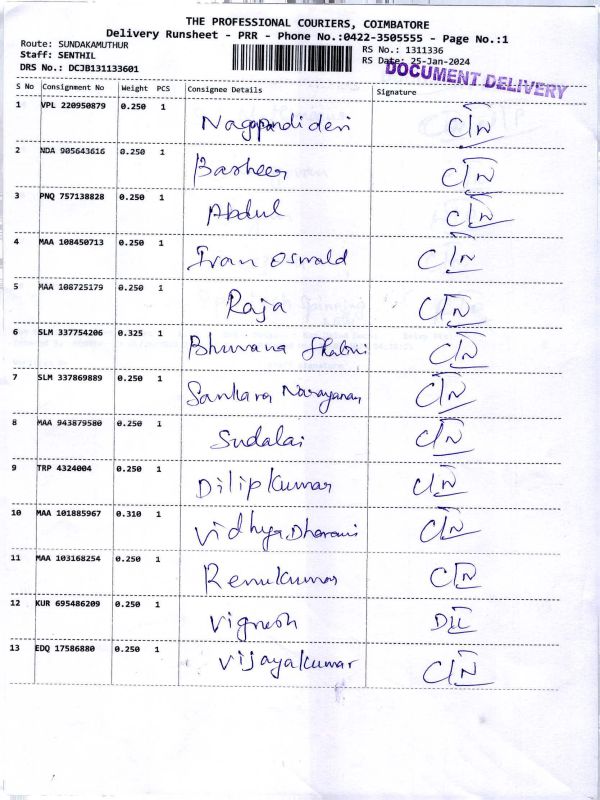 THE PROFESSIONAL COURIERS, COIMBATORE
Delivery Runsheet - PRR - Phone No.:0422-3505555 - Page No.:1
Route: SUNDAKAMUTHUR
RS No.: 1311336
Staff: SENTHIL
RS Date: 25-Jan-2024
DRS No.: DCJB131133601
DOCUMENT DELIVERY
S No Consignment No Weight PCS Consignee Details Signature
1 VPL 220950879 0.250 1 Nagapandidevi C/N
2 NDA 905643616 0.250 1 Basheer C/N
3 PNQ 757138828 0.250 1 Abdul C/N
4 MAA 108450713 0.250 1 Ivan Oswald C/N
5 MAA 108725179 0.250 1 Raja C/N
6 SLM 337754206 0.325 1 Bhuvana C/N
7 SLM 337869889 0.250 1 Sankara Narayanan C/N
8 MAA 943879580 0.250 1 Sudalai C/N
9 TRP 4324004 0.250 1 Dilipkumar C/N
10 MAA 101885967 0.310 1 Vidhya Dharani C/N
11 MAA 103168254 0.250 1 Renukumar C/N
12 KUR 695486209 0.250 1 Vignesh
13 EDQ 17586880 0.250 1 Vijayakumar C/N